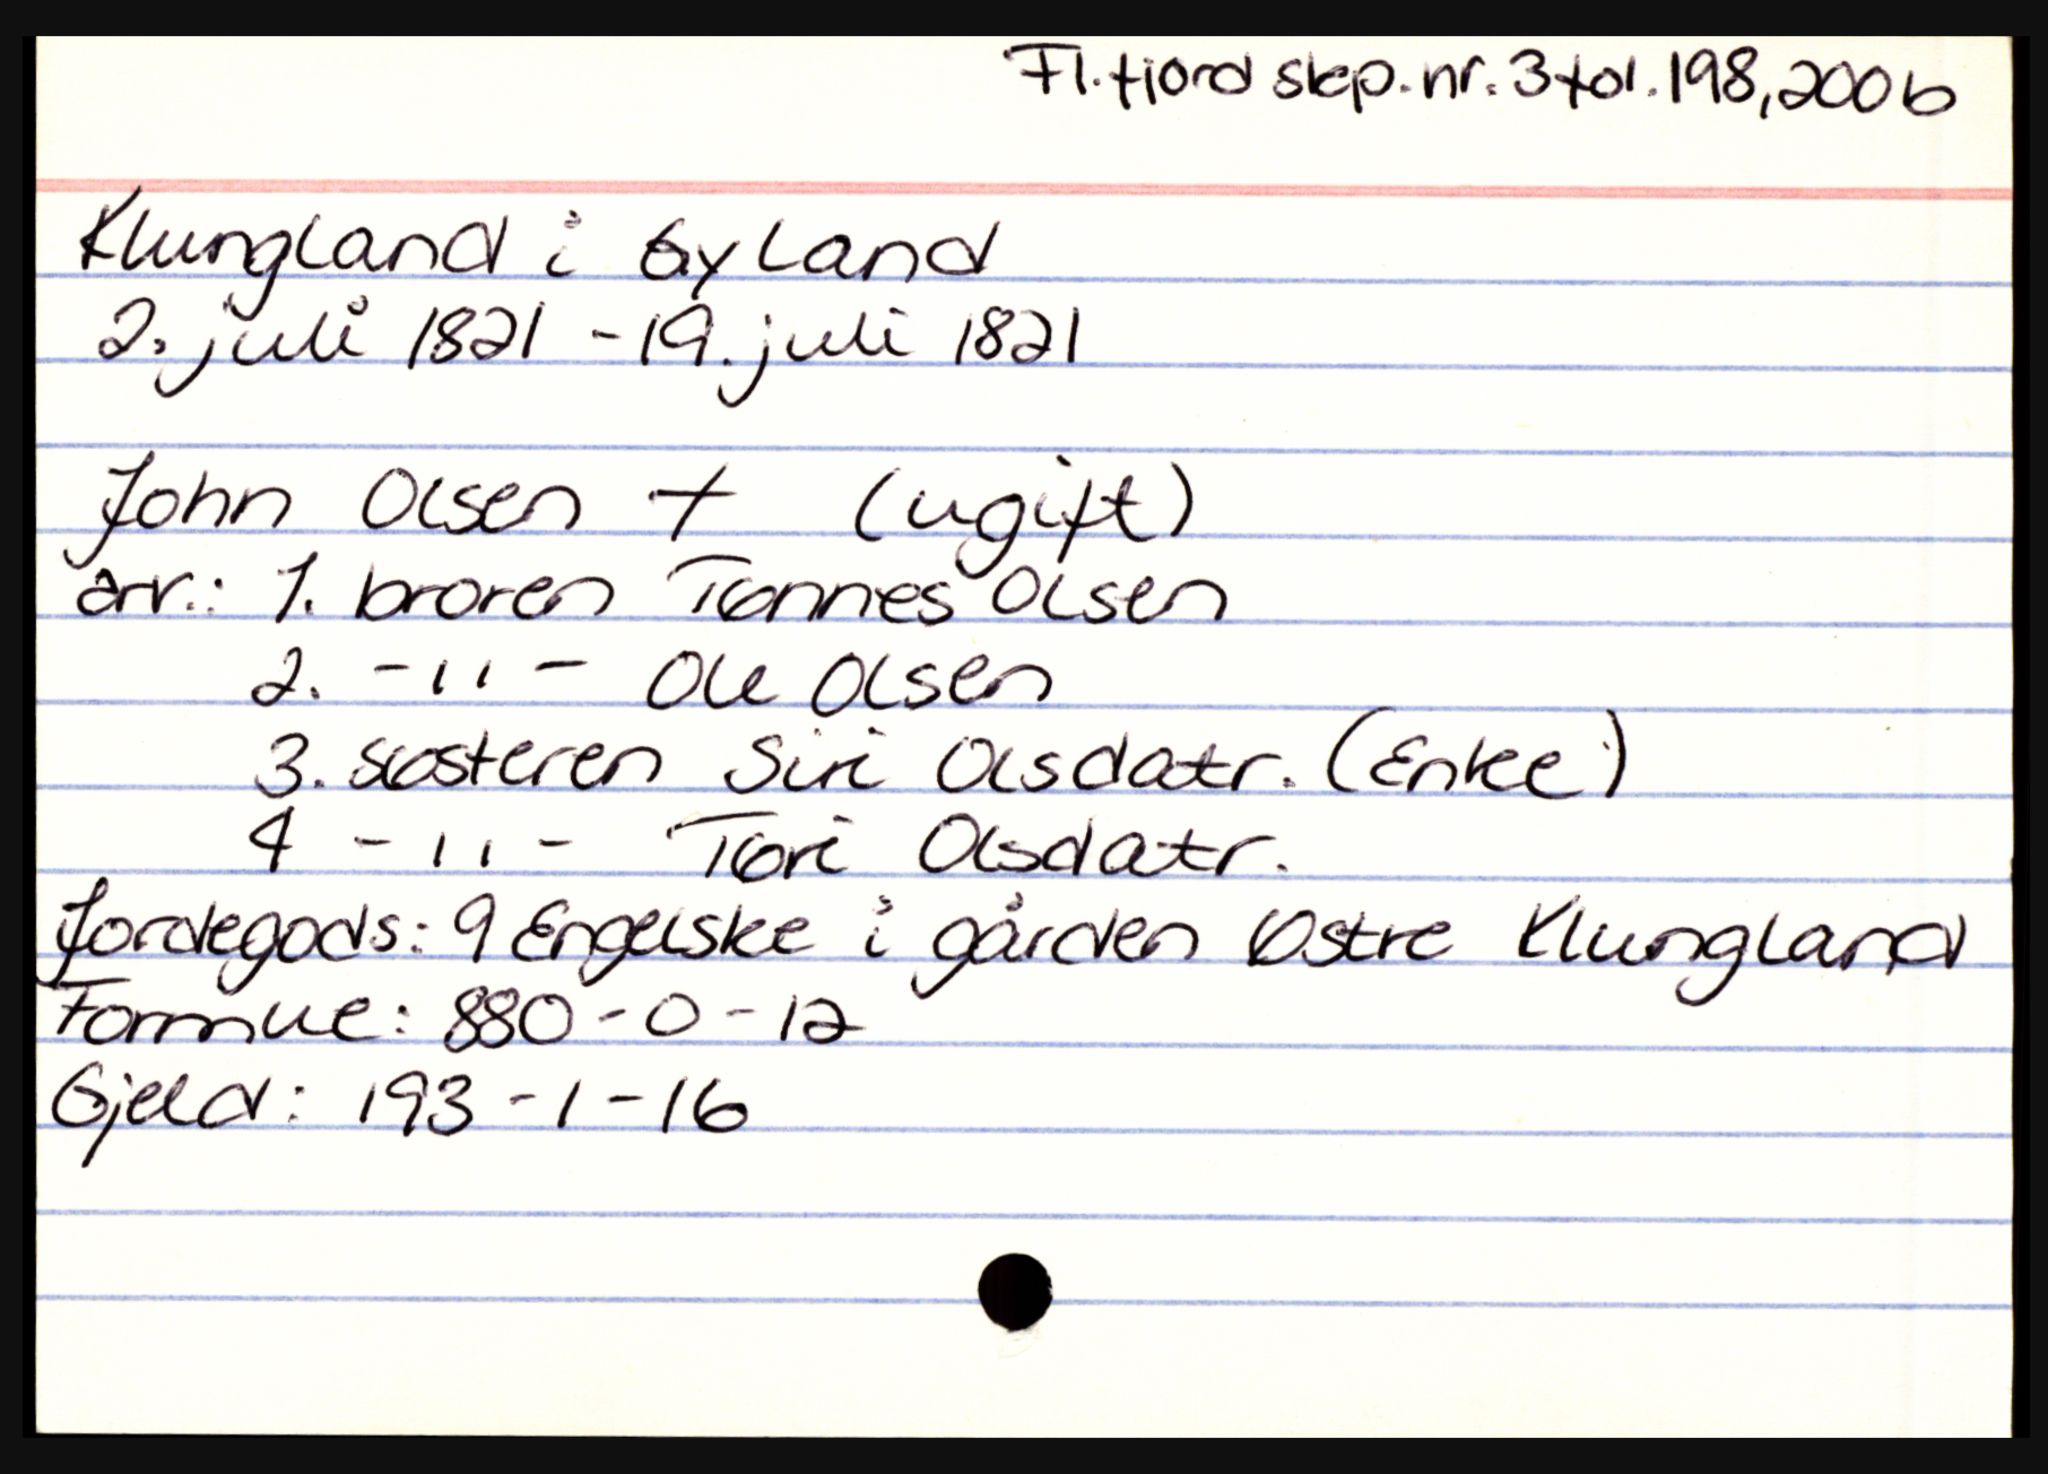 Fl.fjord skp. nr. 3 fol. 198, 200b
Klungland i Gyland
2. juli 1821 - 19. juli 1821
John Olsen + (ugift)
arv.: 1. broren Tønnes Olsen
2. -"- Ole Olsen
3. søsteren Siri Olsdatr. (Enke)
4 -"- Tøri Olsdatr.
Jordegods: 9 Engelske i gården Østre Klungland
Formue: 880-0-12
Gjeld: 193-1-16